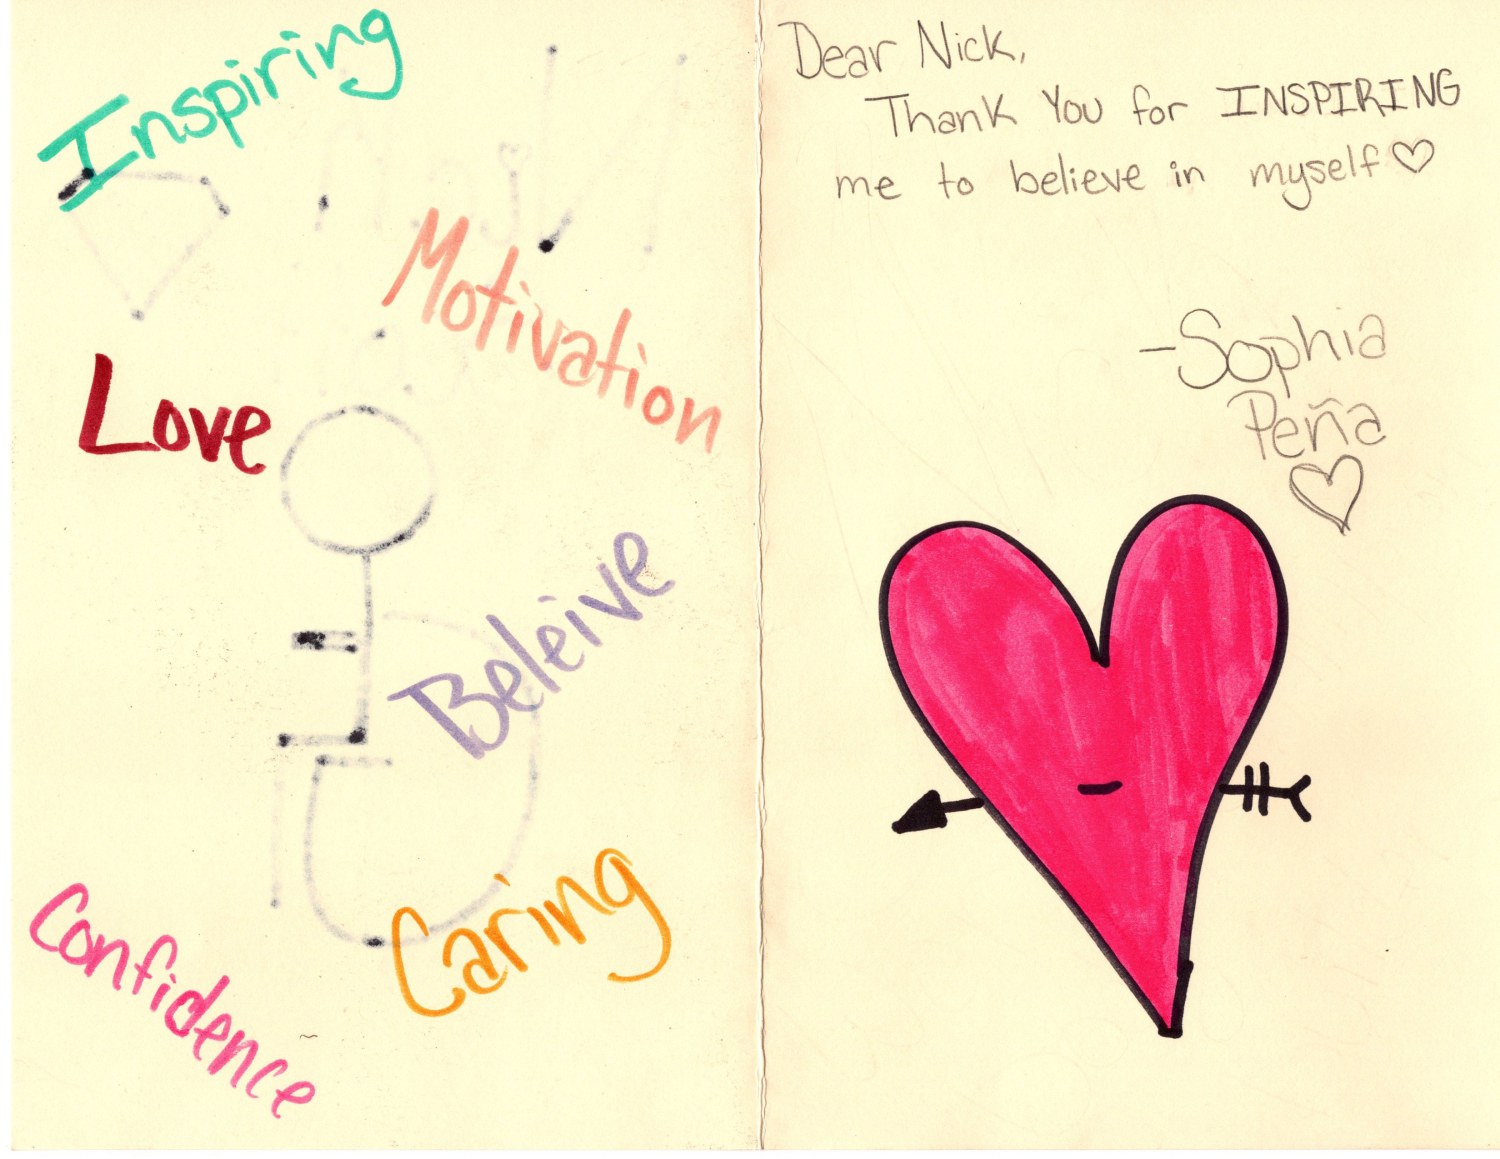 Inspiring
Motivation
Love
Beleive
Caring
Confidence
Dear Nick,
Thank You for INSPIRING
me to believe in myself♡
-Sophia
Peña